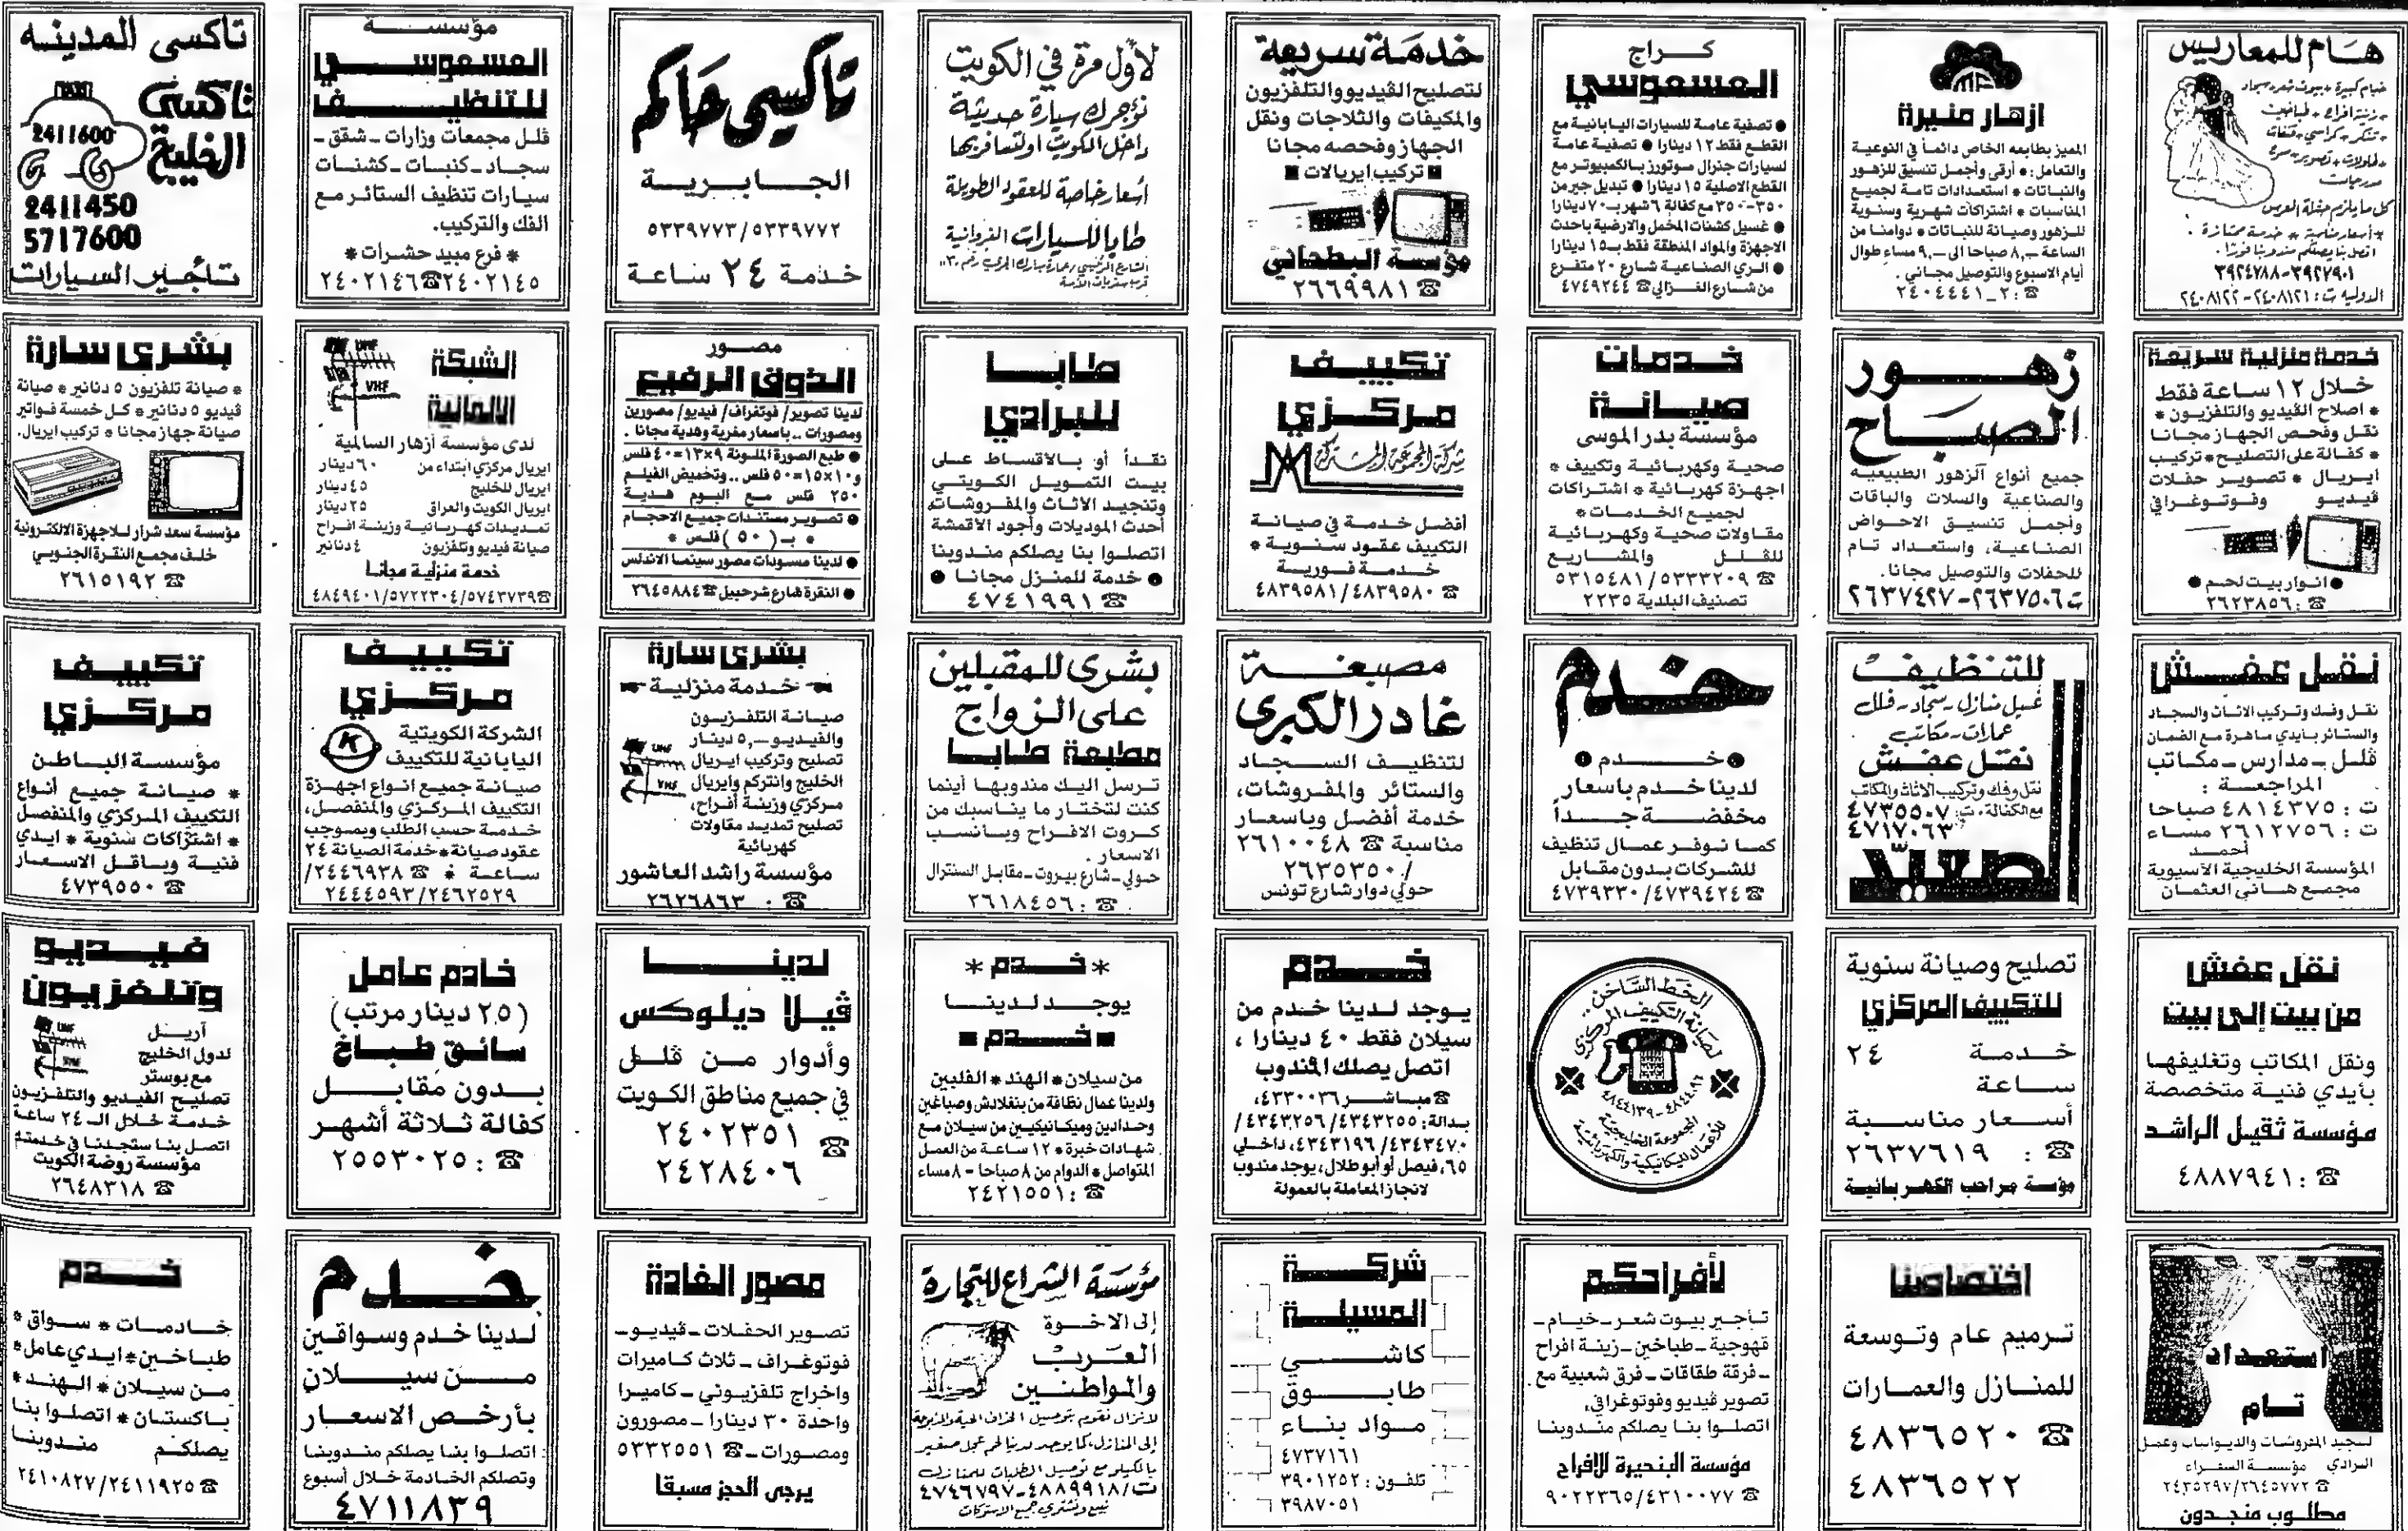 هشام للمعاريس
خيام كبيرة + بيوت شعر + سجاد
+ زينة افراح + طباخين
كل ما يلزم حفلة العرس
* أسعار مناسبة * خدمة ممتازة .
اتصل بنا يصلكم مندوبنا فورا .
٣٩٢٤٧٨٨-٣٩٢٧٩٠١
الدولية ت : ٢٤٠٨١٢١-٢٤٠٨١٢٢
ازهار منيرة
المميز بطابعه الخاص دائماً في النوعية
والتعامل : * أرقى وأجمل تنسيق للزهور
والنباتات * استعدادات تامة لجميع
المناسبات * اشتراكات شهرية وسنوية
للزهور وصيانة للنباتات * دوامنا من
الساعة ٨,ــ صباحا الى ٩,ــ مساء طوال
أيام الاسبوع والتوصيل مجاني .
☎ : ٢ـ٢٤٠٤٤٤١
كراج
المسعوسي
● تصفية عامة للسيارات اليابانية مع
القطع فقط ١٢ دينارا ● تصفية عامة
لسيارات جنرال موتورز بالكمبيوتر مع
القطع الاصلية ١٥ دينارا ● تبديل جير من
٣٥٠-٣٥٠ مع كفالة ٦ شهر بـ ٧٠ دينارا
● غسيل كشنات المخمل والارضية باحدث
الاجهزة والمواد المنظفة فقط بـ ١٥ دينارا
● الري الصناعية شارع ٢٠ متفرع
من شارع الغزالي ☎ ٤٧٤٩٢٤٤
خدمة سريعة
لتصليح الڤيديو والتلفزيون
والمكيفات والثلاجات ونقل
الجهاز وفحصه مجانا
■ تركيب ايريالات ■
مؤسسة البطحاني
☎ ٢٦٦٩٩٨١
لأول مرة في الكويت
نؤجرك سيارة حديثة
داخل الكويت أو لتسافر بها
أسعار خاصة للعقود الطويلة
طابا للسيارات الفروانية
تاكسي حاكم
الجابرية
٥٣٣٩٧٧٣/٥٣٣٩٧٧٢
خدمة ٢٤ ساعة
مؤسسة
المسعوسي
للتنظيف
ڤلل مجمعات وزارات ـ شقق ـ
سجاد ـ كنبات ـ كشنات
سيارات تنظيف الستائر مع
الفك والتركيب.
* فرع مبيد حشرات *
٢٤٠٢١٤٦☎٢٤٠٢١٤٥
تاكسى المدينه
تاكسي
الخليج
2411600
2411450
5717600
تأجير السيارات
خدمة منزلية سريعة
خلال ١٢ ساعة فقط
* اصلاح الڤيديو والتلفزيون *
نقل وفحص الجهاز مجانا
* كفالة على التصليح * تركيب
ايريال * تصوير حفلات
ڤيديو وفوتوغرافي
● انوار بيت لحم ●
☎ : ٢٦٢٣٨٥٦
زهور
الصباح
جميع أنواع الزهور الطبيعية
والصناعية والسلات والباقات
وأجمل تنسيق الاحواض
الصناعية، واستعداد تام
للحفلات والتوصيل مجانا.
ت ٢٦٣٧٥٠٦-٢٦٣٧٤٢٧
خدمات
صيانة
مؤسسة بدر الموسى
صحية وكهربائية وتكييف *
اجهزة كهربائية * اشتراكات
لجميع الخدمات *
مقاولات صحية وكهربائية
للڤلل والمشاريع
☎ ٥٣١٥٤٨١/٥٣٣٣٢٠٩
تصنيف البلدية ٢٢٣٥
تكييف
مركزي
شركة المجموعة المشتركة
أفضل خدمة في صيانة
التكييف عقود سنوية *
خدمة فورية
☎ ٤٨٣٩٥٨١/٤٨٣٩٥٨٠
طابا
للبرادي
نقداً أو بالاقساط على
بيت التمويل الكويتي
وتنجيد الاثاث والمفروشات
أحدث الموديلات وأجود الاقمشة
اتصلوا بنا يصلكم مندوبنا
● خدمة للمنزل مجانا ●
☎ ٤٧٤١٩٩١
مصور
الذوق الرفيع
لدينا تصوير/ فوتغراف/ فيديو/ مصورين
ومصورات .. باسعار مغرية وهدية مجانا .
● طبع الصورة الملونة ٩×١٣=٤٠ فلس
و١٠×١٥=٥٠ فلس .. وتحميض الفيلم
٢٥٠ فلس مع البوم هدية
● تصوير مستندات جميع الاحجام
* بـ ( ٥٠ ) فلس *
● لدينا مسودات مصور سينما الاندلس
● النقرة شارع شرحبيل ☎ ٢٦٤٥٨٨٤
الشبكة
الالمانية
UHF
VHF
لدى مؤسسة أزهار السالمية
ايريال مركزي ابتداء من ٦٠ دينار
ايريال للخليج ٤٥ دينار
ايريال الكويت والعراق ٢٥ دينار
تمديدات كهربائية وزينة افراح
صيانة فيديو وتلفزيون ٤ دنانير
خدمة منزلية مجانا
☎ ٤٨٤٩٤٠١/٥٧٢٢٣٠٤/٥٧٤٣٧٣٩
بشرى سارة
* صيانة تلفزيون ٥ دنانير * صيانة
ڤيديو ٥ دنانير * كل خمسة فواتير
صيانة جهاز مجانا * تركيب ايريال.
مؤسسة سعد شرار للاجهزة الالكترونية
خلف مجمع النقرة الجنوبي
☎ ٢٦١٥١٩٢
نقل عفش
نقل وفك وتركيب الاثاث والسجاد
والستائر بايدي ماهرة مع الضمان
ڤلل ـ مدارس ـ مكاتب
المراجعة :
ت : ٤٨١٤٣٧٥ صباحا
ت : ٢٦١٢٧٥٦ مساء
أحمد
المؤسسة الخليجية الاسيوية
مجمع هاني العثمان
للتنظيف
غسيل منازل ـ سجاد ـ فلل
عمارات ـ مكاتب
نقل عفش
نقل وفك وتركيب الاثاث والمكاتب
مع الكفالة . ت : ٤٧٣٥٥٠٧
٤٧١٧٠٦٣
الصعيد
خدم
● خدم ●
لدينا خدم باسعار
مخفضة جداً
كما نوفر عمال تنظيف
للشركات بدون مقابل
☎ ٤٧٣٩٣٣٠/٤٧٣٩٤٢٤
مصبغة
غادر الكبرى
لتنظيف السجاد
والستائر والمفروشات،
خدمة أفضل وباسعار
مناسبة ☎ ٢٦١٠٠٤٨
/٢٦٣٥٣٥٠
حولي دوار شارع تونس
بشرى للمقبلين
على الزواج
مطبعة طابا
ترسل اليك مندوبها أينما
كنت لتختار ما يناسبك من
كروت الافراح وبانسب
الاسعار .
حولي ـ شارع بيروت ـ مقابل السنترال
☎ : ٢٦١٨٤٥٦
بشرى سارة
خدمة منزلية
صيانة التلفزيون
والفيديو ـ,٥ دينار
تصليح وتركيب ايريال
الخليج وانتركم وايريال
مركزي وزينة أفراح،
تصليح تمديد مقاولات
كهربائية
UHF
VHF
مؤسسة راشد العاشور
☎ : ٢٦٢٦٨٦٣
تكييف
مركزي
الشركة الكويتية
اليابانية للتكييف
K
صيانة جميع انواع اجهزة
التكييف المركزي والمنفصل،
خدمة حسب الطلب وبموجب
عقود صيانة * خدمة الصيانة ٢٤
ساعة * ☎ ٢٤٤٦٩٣٨/
٢٤٤٤٥٩٣/٢٤٦٢٥٢٩
تكييف
مركزي
مؤسسة الباطن
* صيانة جميع أنواع
التكييف المركزي والمنفصل
* اشتراكات سنوية * ايدي
فنية وباقل الاسعار
☎ ٤٧٣٩٥٥٠
نقل عفش
من بيت إلى بيت
ونقل المكاتب وتغليفها
بأيدي فنية متخصصة
مؤسسة ثقيل الراشد
☎ : ٤٨٨٧٩٤١
تصليح وصيانة سنوية
للتكييف المركزي
خدمة ٢٤
ساعة
أسعار مناسبة
☎ : ٢٦٣٧٦١٩
مؤسسة مراحب الكهربائية
الخط الساخن
لصيانة التكييف المركزي
٤٨٤٤٨٩٦-٤٨٤٤١٣٩
المجموعة الخليجية
للأعمال الميكانيكية والكهربائية
خدم
يوجد لدينا خدم من
سيلان فقط ٤٠ دينارا ،
اتصل يصلك المندوب
☎ مباشر ٤٣٣٠٠٣٦،
بدالة: ٤٣٤٣٢٥٥/ ٤٣٤٣٢٥٦/
٤٣٤٣٤٧٠/ ٤٣٤٣١٩٦، داخلي
٦٥، فيصل أو أبو طلال، يوجد مندوب
لانجاز المعاملة بالعمولة
* خدم *
يوجد لدينا
■ خدم ■
من سيلان * الهند * الفلبين
ولدينا عمال نظافة من بنغلادش وصباغين
وحدادين وميكانيكيين من سيلان مع
شهادات خبرة * ١٢ ساعة من العمل
المتواصل * الدوام من ٨ صباحا - ٨ مساء
☎ : ٢٤٢١٥٥١
لدينا
ڤيلا ديلوكس
وأدوار من ڤلل
في جميع مناطق الكويت
☎ ٢٤٠٢٣٥١
٢٤٢٨٤٠٦
خادم عامل
(٢٥ دينار مرتب)
سائق طباخ
بدون مقابل
كفالة ثلاثة أشهر
☎ : ٢٥٥٣٠٢٥
فيديو
وتلفزيون
آريل
لدول الخليج
مع بوستر
تصليح الفيديو والتلفزيون
خدمة خلال الـ ٢٤ ساعة
اتصل بنا ستجدنا في خدمتكم
مؤسسة روضة الكويت
☎ ٢٦٤٨٣١٨
استعداد
تام
لتنجيد المفروشات والديوانيات وعمل
البرادي مؤسسة السفراء
☎ ٢٤٣٥٢٩٧/٢٦٤٥٧٧٢
مطلوب منجدون
اختصاصنا
ترميم عام وتوسعة
للمنازل والعمارات
☎ ٤٨٣٦٥٢٠
٤٨٣٦٥٢٢
لأفراحكم
تأجير بيوت شعر ـ خيام ـ
قهوجية ـ طباخين ـ زينة افراح
ـ فرقة طقاقات ـ فرق شعبية مع
تصوير ڤيديو وفوتوغرافي،
اتصلوا بنا يصلكم مندوبنا
مؤسسة البنحيرة للافراح
☎ ٩٠٢٢٣٦٥/٤٣١٠٠٧٧
شركة
المسيلة
كاشي
طابوق
مواد بناء
٤٧٣٧١٦١
تلفون : ٣٩٠١٢٥٢
٣٩٨٧٠٥١
مؤسسة الشراع للتجارة
إلى الاخوة
العرب
والمواطنين
لا نزال نقوم بتوصيل الخراف الحية والمذبوحة
إلى المنازل، كما يوجد لدينا لحم عجل صغير
بالكيلو مع توصيل الطلبات للمنازل
ت/٤٨٨٩٩١٨-٤٧٤٦٧٩٧
مصور الغادة
تصوير الحفلات ـ ڤيديو ـ
فوتوغراف ـ ثلاث كاميرات
واخراج تلفزيوني ـ كاميرا
واحدة ٣٠ دينارا ـ مصورون
ومصورات ـ ☎ ٥٣٣٢٥٥١
يرجى الحجز مسبقا
خدم
لدينا خدم وسواقين
من سيلان
بأرخص الاسعار
اتصلوا بنا يصلكم مندوبنا
وتصلكم الخادمة خلال أسبوع
٤٧١١٨٣٩
خدم
خادمات * سواق *
طباخين * ايدي عامل *
من سيلان * الهند *
باكستان * اتصلوا بنا
يصلكم مندوبنا
☎ ٢٤١٠٨٢٧/٢٤١١٩٢٥